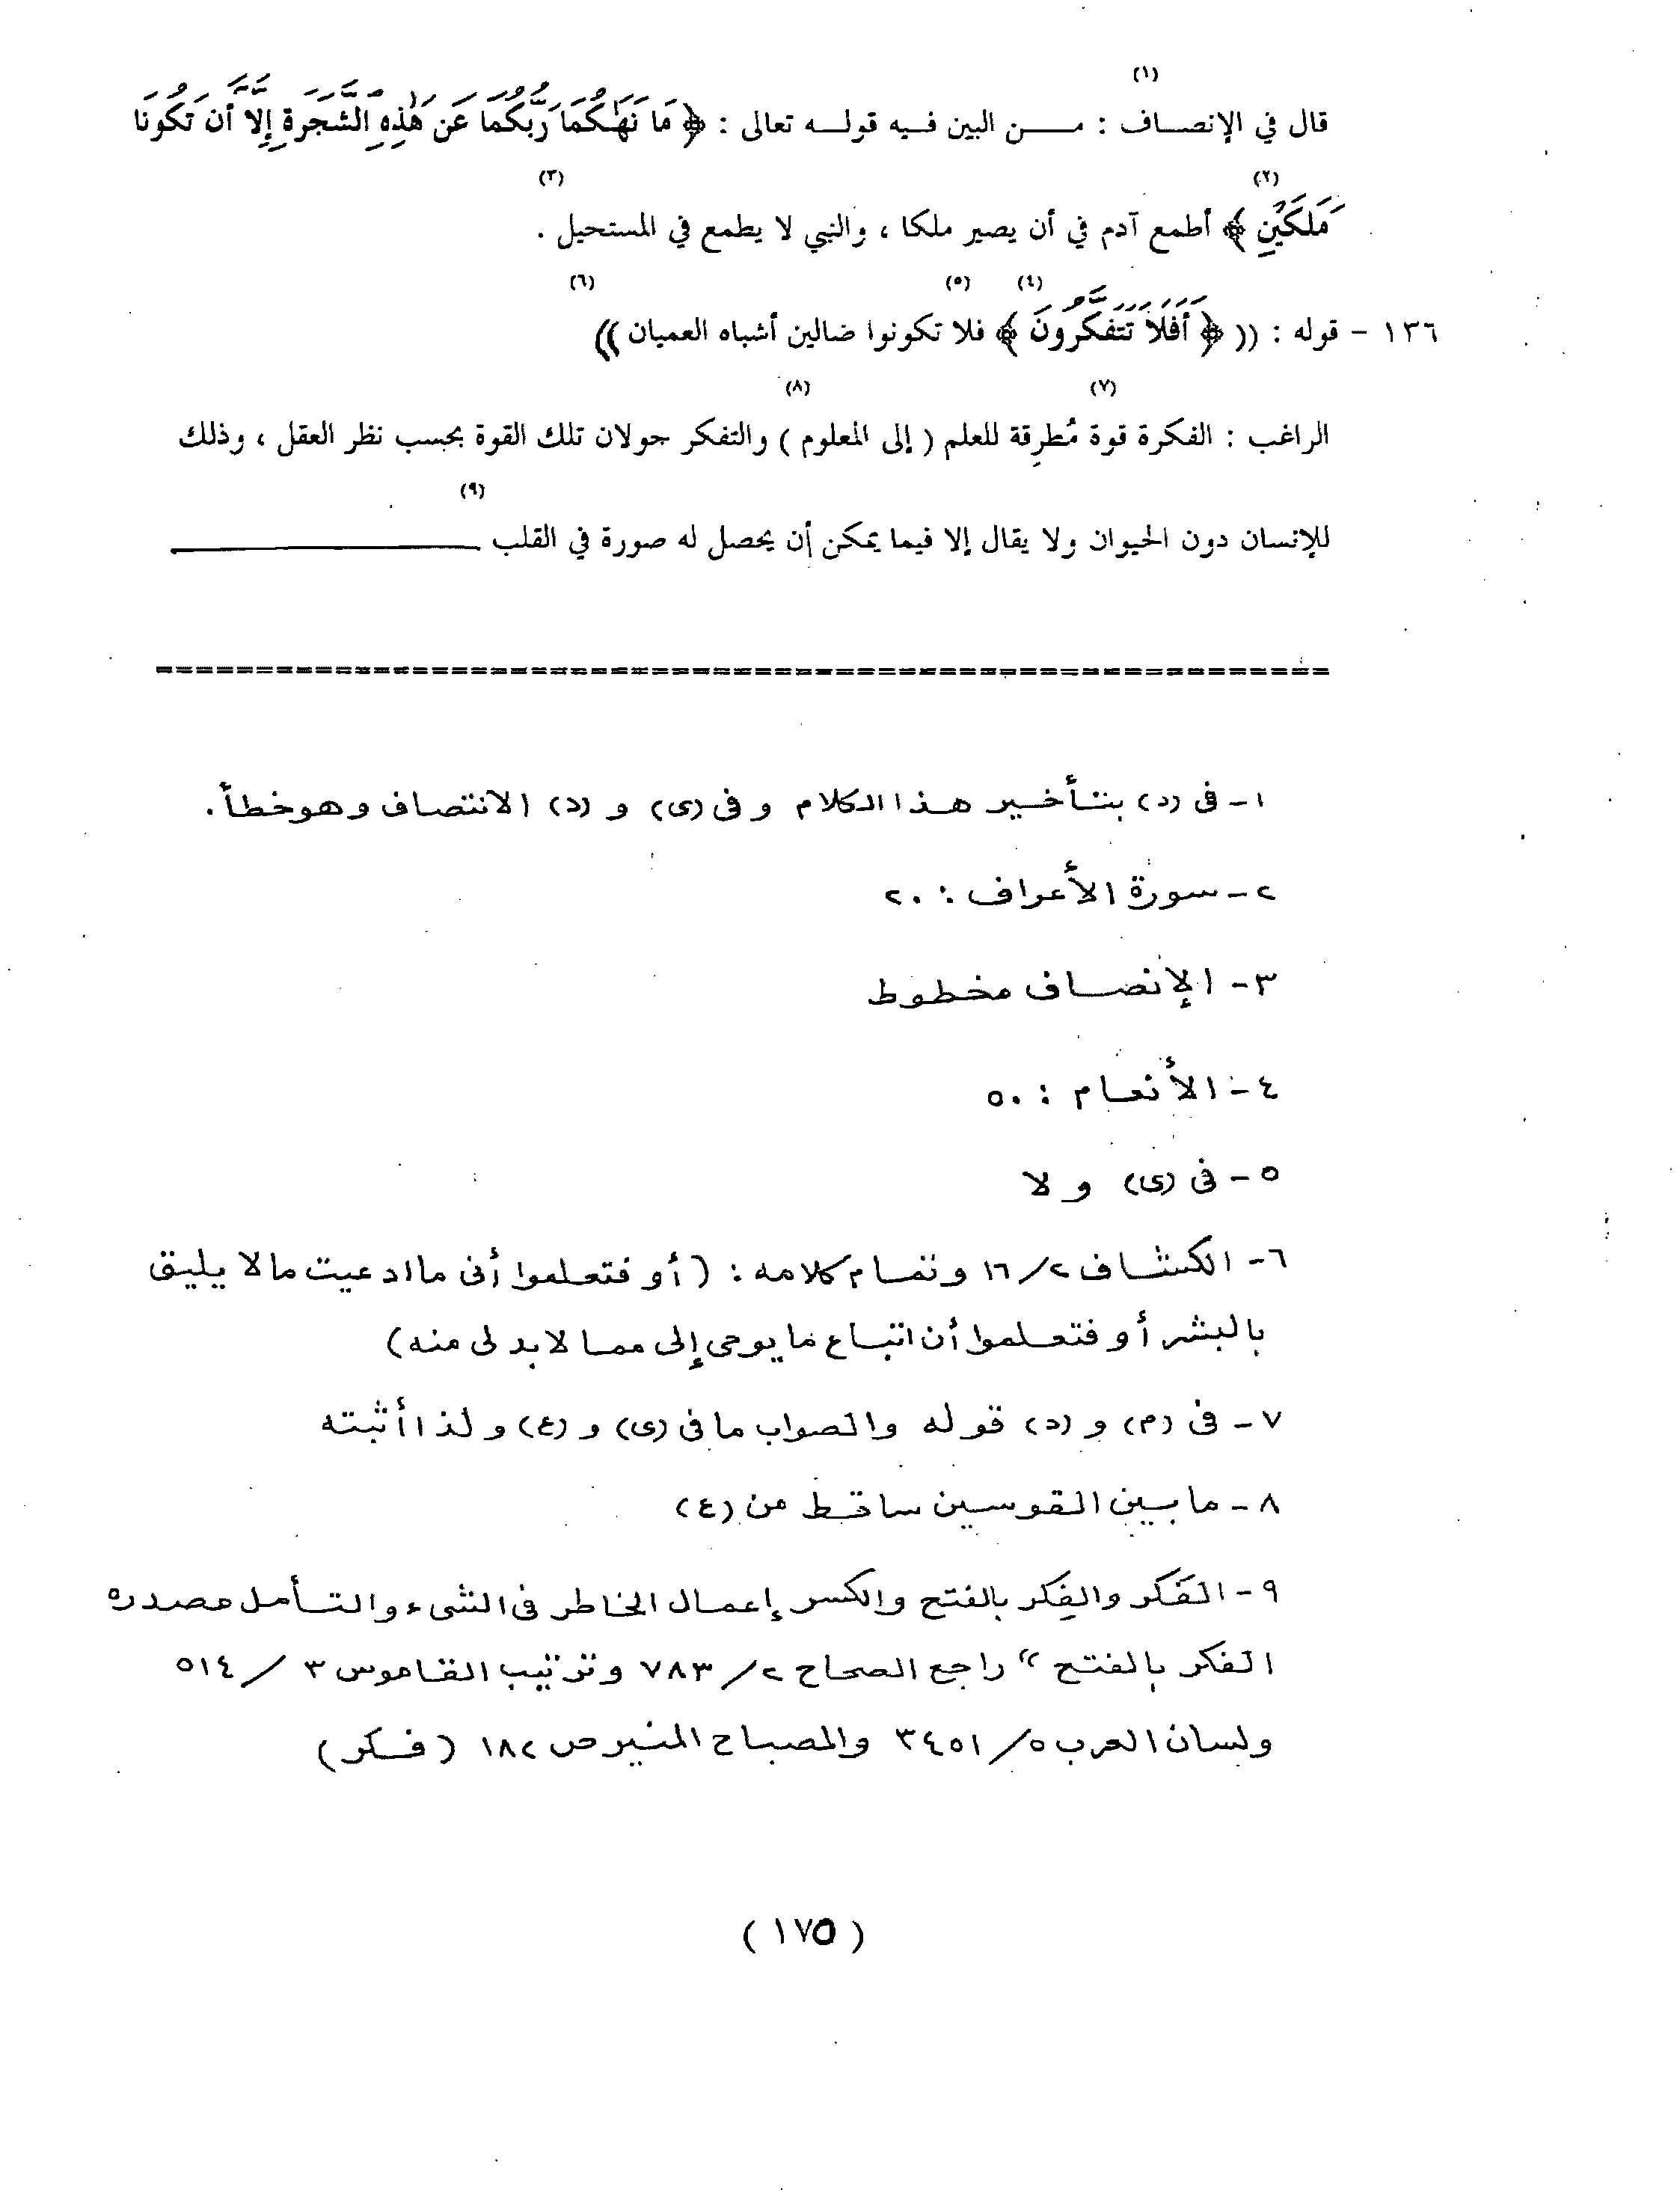 (١)
قال في الإنصاف : من البين فيه قوله تعالى : ﴿ مَا نَهَاكُمَا رَبُّكُمَا عَن هَٰذِهِ الشَّجَرَةِ إِلَّا أَن تَكُونَا
(٢) (٣)
مَلَكَيْنِ ﴾ أطمع آدم في أن يصير ملكا ، والنبي لا يطمع في المستحيل .
(٤) (٥) (٦)
١٣٦ - قوله : (( ﴿ أَفَلَا تَتَفَكَّرُونَ ﴾ فلا تكونوا ضالين أشباه العميان ))
(٧) (٨)
الراغب : الفكرة قوة مُطرِقة للعلم ( إلى المعلوم ) والتفكر جولان تلك القوة بحسب نظر العقل ، وذلك
(٩)
للإنسان دون الحيوان ولا يقال إلا فيما يمكن أن يحصل له صورة في القلب
١- فى (د) بتأخير هذا الكلام وفى (ى) و (د) الانتصاف وهو خطأ.
٢- سورة الأعراف : ٢٠
٣- الإنصاف مخطوط
٤- الأنعام : ٥٠
٥- فى (ى) ولا
٦- الكشاف ٢/١٦ وتمام كلامه : ( أو فتعلموا أنى ما ادعيت ما لا يليق
بالبشر أو فتعلموا أن اتباع ما يوحى إلى مما لا بد لى منه )
٧- فى (م) و (د) قوله والصواب ما فى (ى) و (ع) ولذا أثبته
٨- ما بين القوسين ساقط من (ع)
٩- الفَكر والفِكر بالفتح والكسر إعمال الخاطر فى الشىء والتأمل مصدره
الفكر بالفتح " راجع الصحاح ٢/٧٨٣ وترتيب القاموس ٣/٥١٤
ولسان العرب ٥/٣٤٥١ والمصباح المنير ص ١٨٢ ( فكر )
( ١٧٥ )